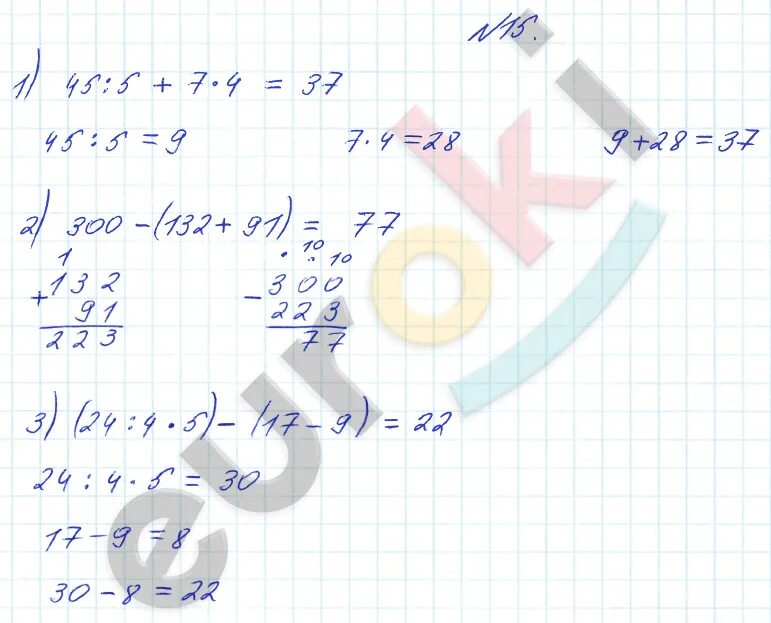 №15.
1) 45:5 + 7·4 = 37
45:5 = 9 7·4 = 28 9+28 = 37
2) 300 – (132 + 91) = 77
1 · 10 10
+ 132 – 300
91 223
223 77
3) (24:4·5) – (17 – 9) = 22
24:4·5 = 30
17 – 9 = 8
30 – 8 = 22
euroki